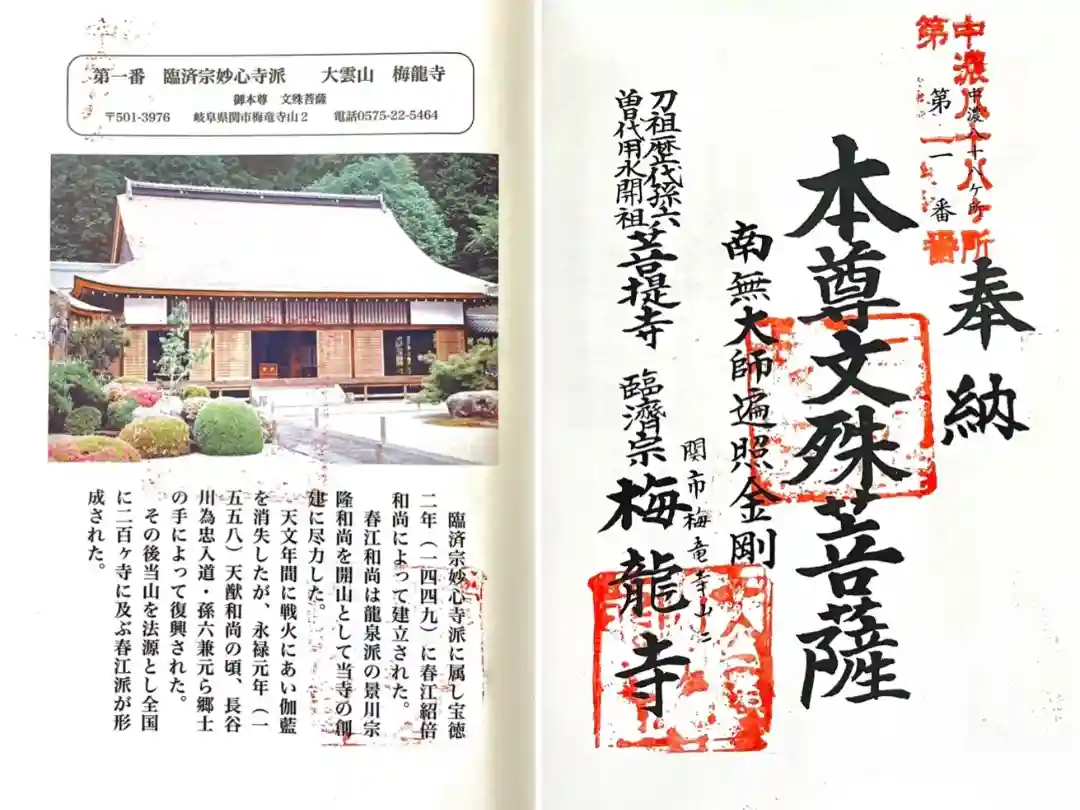 第一番 臨済宗妙心寺派 大雲山 梅龍寺
御本尊 文殊菩薩
〒501-3976 岐阜県関市梅竜寺山2 電話0575-22-5464
臨済宗妙心寺派に属し宝徳
二年（一四四九）に春江紹倍
和尚によって建立された。
春江和尚は龍泉派の景川宗
隆和尚を開山として当寺の創
建に尽力した。
天文年間に戦火にあい伽藍
を消失したが、永禄元年（一
五五八）天猷和尚の頃、長谷
川為忠入道・孫六兼元ら郷士
の手によって復興された。
その後当山を法源とし全国
に二百ヶ寺に及ぶ春江派が形
成された。
中濃八十八ヶ所
第一番
中濃八十八ヶ所
第一番
奉納
本尊文殊菩薩
南無大師遍照金剛
関市梅竜寺山二
刀祖歴代孫六
曽代用水開祖
菩提寺 臨濟宗 梅龍寺